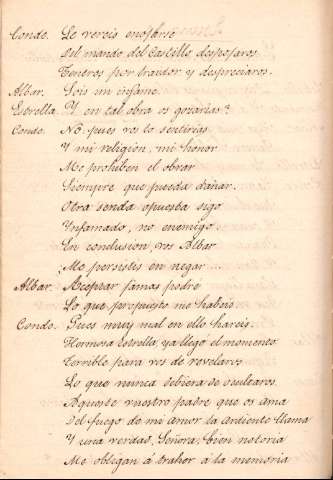 Conde. Le vereis enojarse
Del mando del Castillo desposaros
Teneros por traidor y despreciaros.
Albar. Sois un infame.
Estrella. Y en tal obra os gozarias?
Conde. No pues vos lo sentirias
Y mi religion, mi honor
Me prohiben el obrar
Siempre que pueda dañar.
Otra senda opuesta sigo
Infamado, no enemigo
En conclusion, vos Albar
Me persistis en negar ...
Albar. Aceptar jamas podré
Lo que propuesto me habeis
Conde. Pues muy mal en ello hareis.
Hermosa Estrella, ya llegó el momento
Terrible para vos de revelaros
Lo que nunca debiera
Aqueste vuestro padre que os ama
Del fuego de mi amor la ardiente llama
Y una verdad, Señora, bien notoria
Me obligan á traher á la memoria